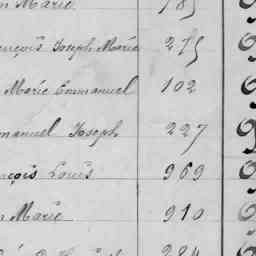 Marie 185
ançois Joseph Marie 215
Marie Emmanuel 102
manuel Joseph 227
nçois Louis 969
n Marie 910
284